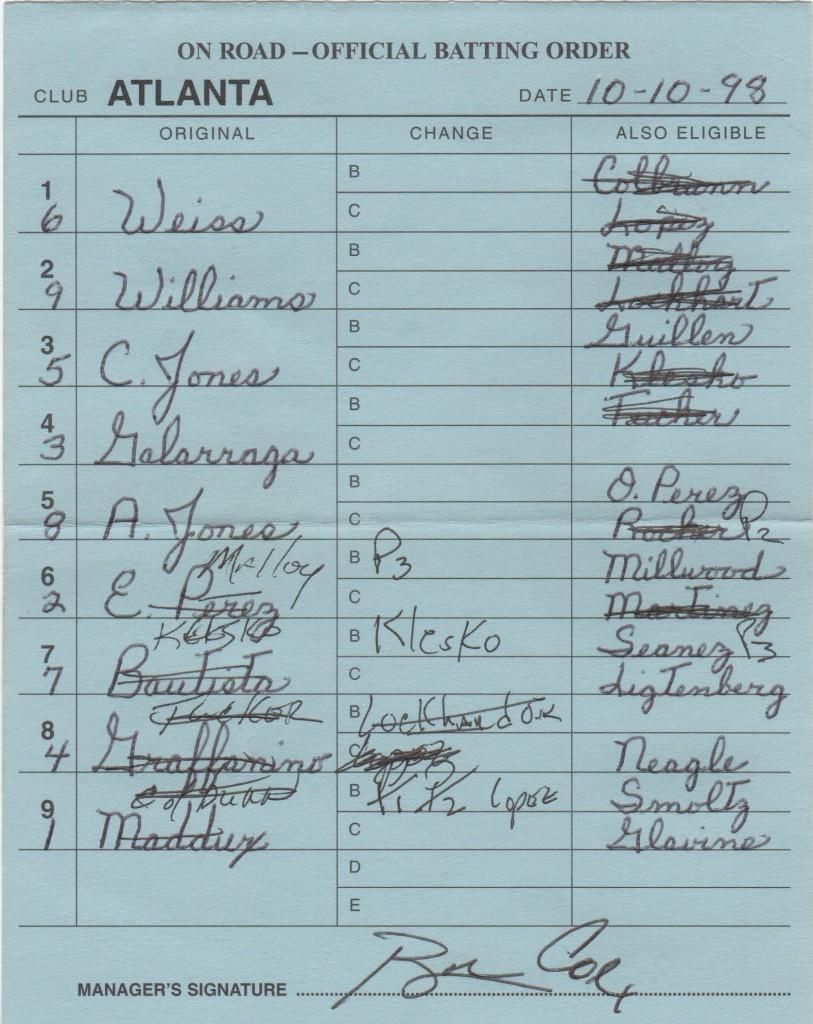 ON ROAD – OFFICIAL BATTING ORDER
CLUB ATLANTA DATE 10-10-98
ORIGINAL CHANGE ALSO ELIGIBLE
B Colbrunn
1
6 Weiss C Lopez
B Malloy
2
9 Williams C Lockhart
B Guillen
3
5 C. Jones C Klesko
B Tucher
4
3 Galarraga C
B O. Perez
5
8 A. Jones C Rocker P2
Malloy B P3 Millwood
6
2 E. Perez C Martinez
Klesko B Klesko Seanez P3
7
7 Bautista C Ligtenberg
Tucker B Lockhart
8
4 Graffanino C Lopez Neagle
Colbrunn B P1 P2 Lopez Smoltz
9
1 Maddux C Glavine
D
E
MANAGER'S SIGNATURE Bob Cox